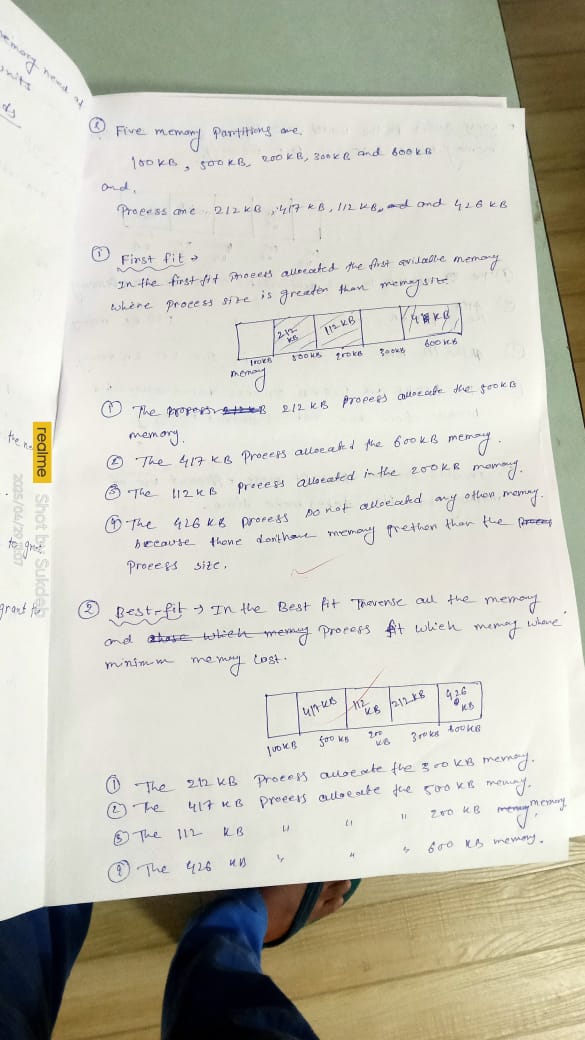 emory need of
units
ds
② Five memory Partitions are,
100 KB, 500 KB, 200 KB, 300 KB and 600 KB
and,
Process are 212 KB, 417 KB, 112 KB, and and 426 KB
① First fit →
In the first fit process allocated the first available memory
where process size is greater than memory size
212 KB 112 KB KB
100KB 500KB 200KB 300KB 600KB
memory
① The 212 KB process allocate the 500KB
memory.
② The 417 KB Process allocated the 600KB memory.
③ The 112 KB process allocated in the 200KB memory.
④ The 426 KB process Do not allocated any other memory.
because there donthave memory than the
Process size.
② Best-fit → In the Best fit Traverse all the memory
and which memory Process fit which memory where
minimum memory Lost.
417 KB 112 KB 212 KB 426 KB
100KB 500 KB 200 KB 300KB 600KB
① The 212 KB Process allocate the 300 KB memory.
② The 417 KB Process allocate the 500 KB memory.
③ The 112 KB " " " 200 KB memory
④ The 426 KB " " " 600 KB memory.
the ne
to gre
grant to
realme Shot by Sukdeb